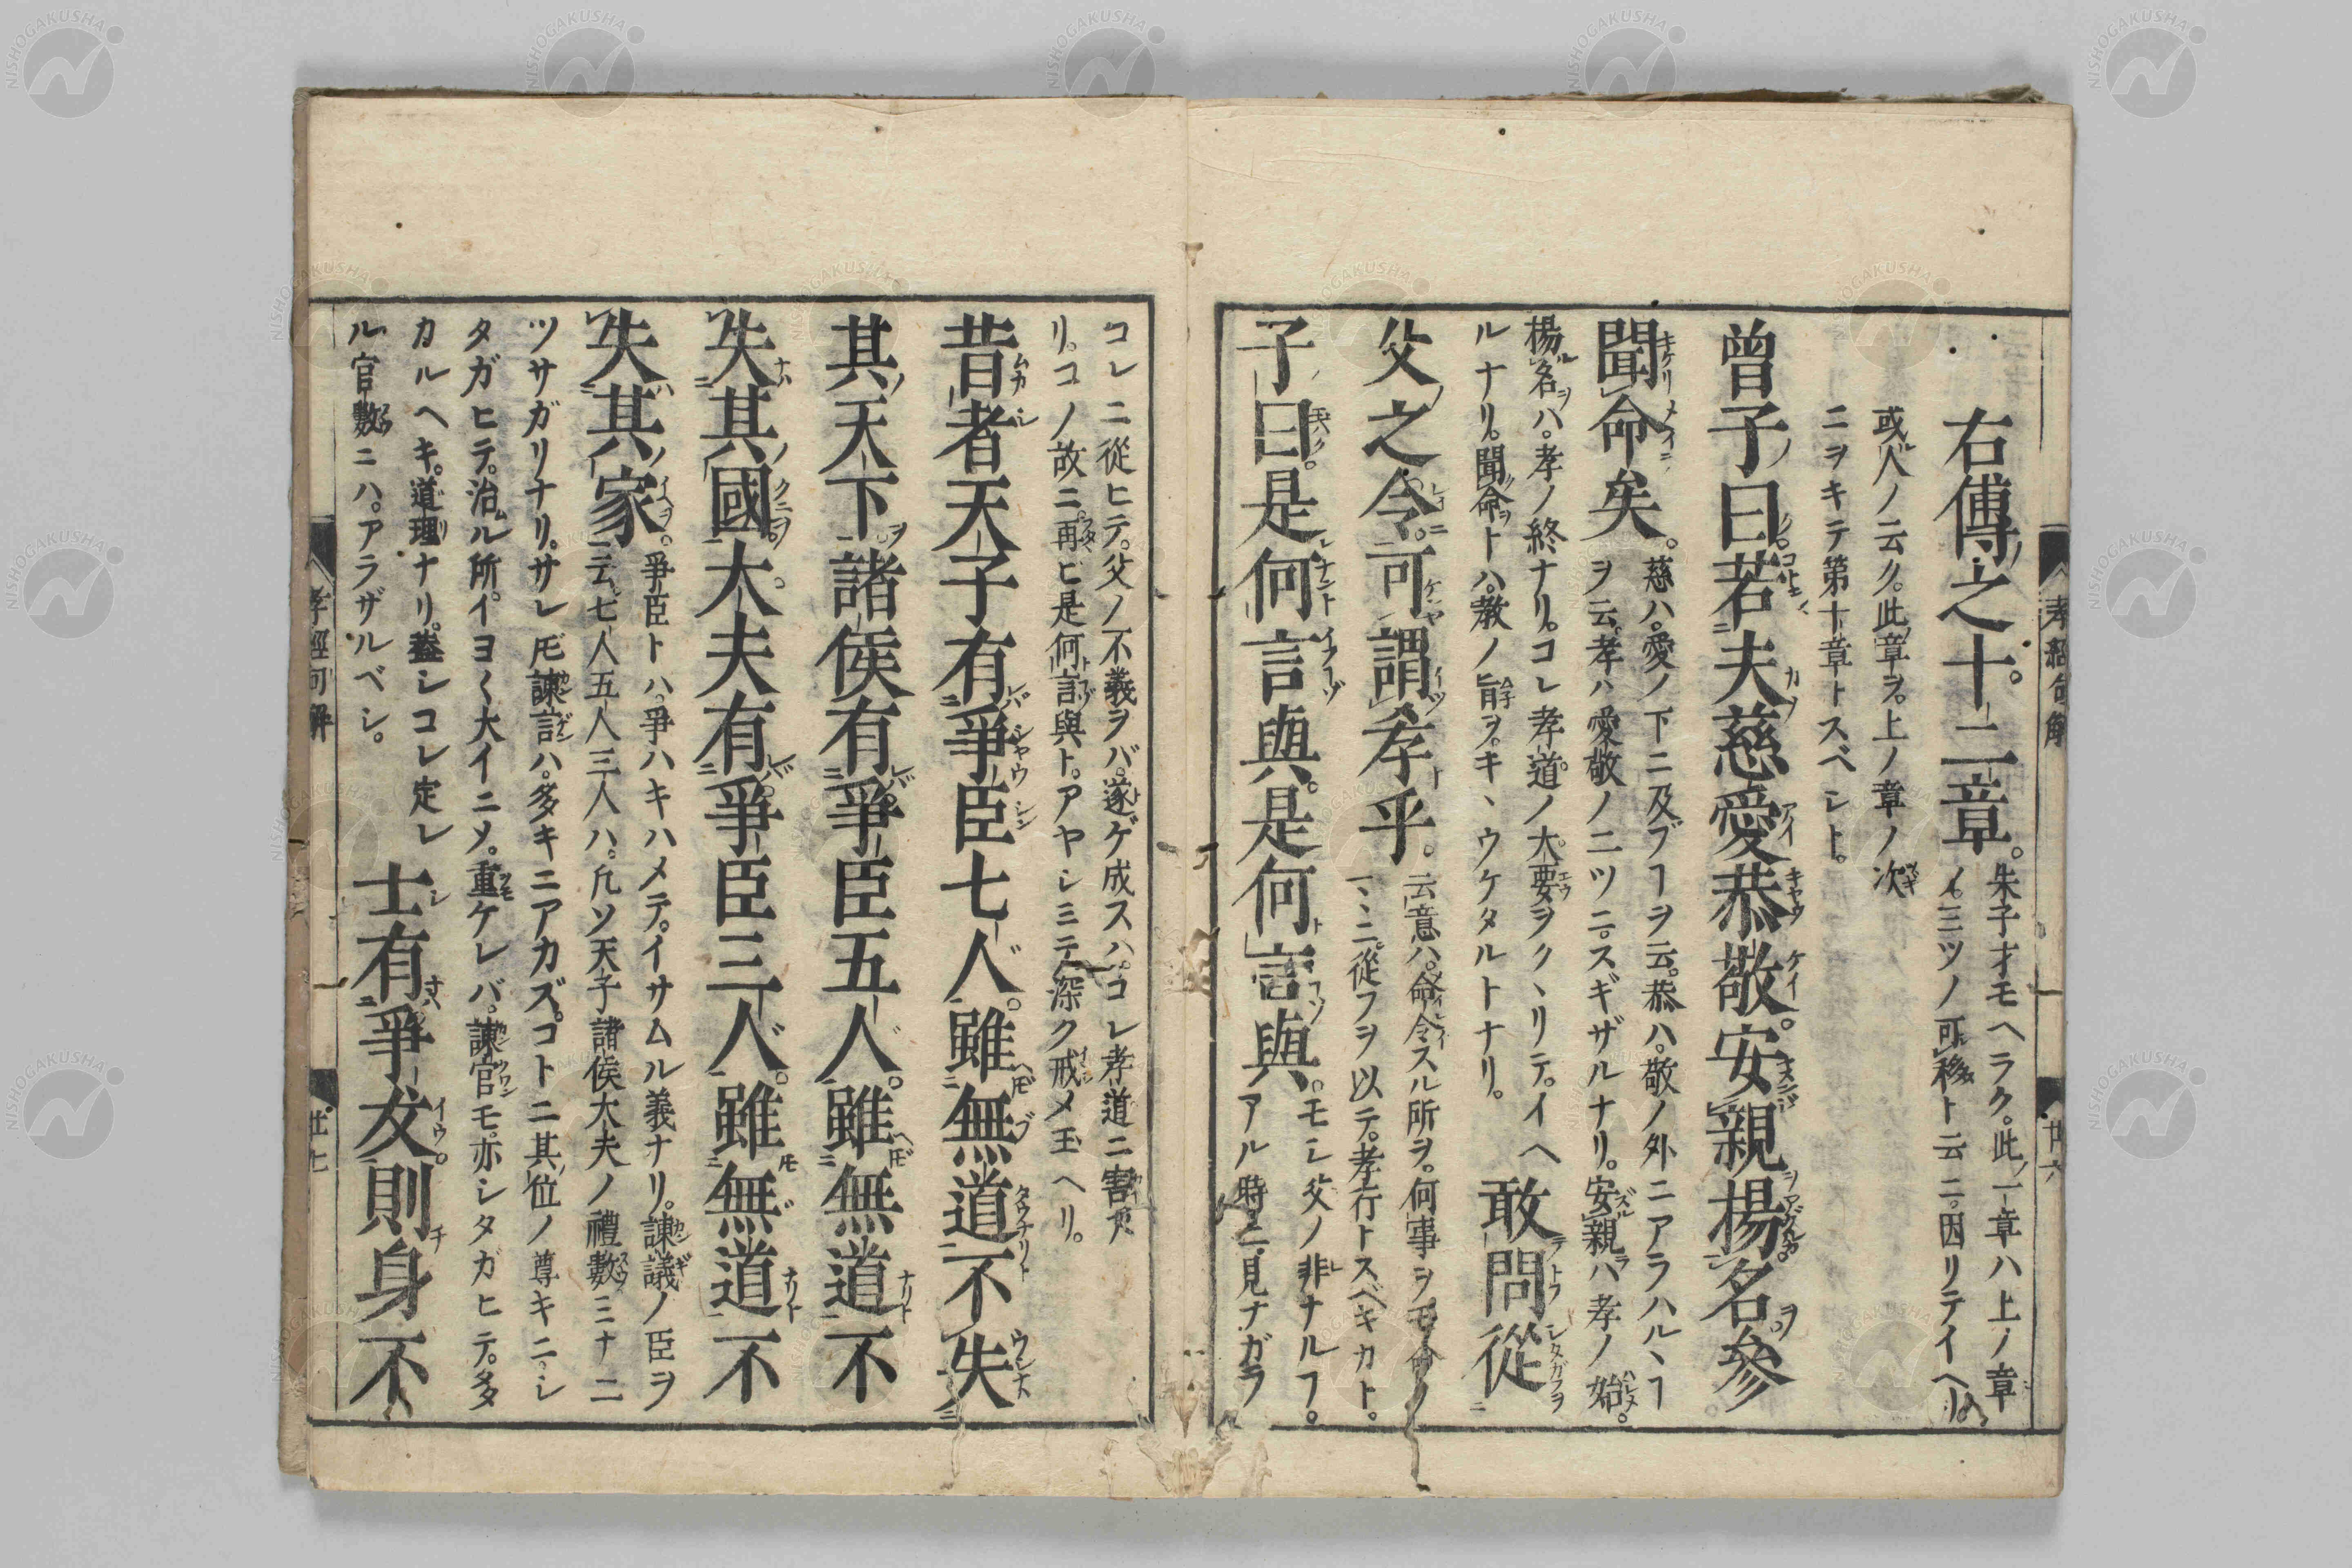 右傳之十二章。
朱子才モヘラク。此一章ハ上ノ章
イ。三ツノ可移ト云ニ。因リテイヘリ。
或人ノ云ク。此章ヲ。上ノ章ノ次
ニヲキテ第十章トスベシト。
曾子曰若夫慈愛恭敬。安親揚名。參
聞命矣。
慈ハ。愛ノ下ニ及ブヿヲ云。恭ハ。敬ノ外ニアラハルヽヿ
ヲ云。孝ハ愛敬ノ二ツニ。スギザルナリ。安親ハ孝ノ始。
揚名ハ。孝ノ終ナリ。コレ孝道ノ大要ヲクヽリテ。イヘ
ルナリ。聞命トハ。教ノ旨ヲ。キヽウケタルトナリ。
敢問從
父之令。可謂孝乎。
云意ハ。命令スル所ヲ。何事ヲモ命ノ
一ヽニ。從フヲ以テ。孝行トスベキカト。
子曰。是何言與。是何言與。
モシ父ノ非ナルヿ。
アル時ニ。見ナガラ
コレニ從ヒテ。父ノ不義ヲバ。遂ゲ成スハ。コレ孝道ニ害
リ。コノ故ニ。再ビ是何言與ト。アヤシミテ深ク戒メ玉ヘリ。
昔者天子有爭臣七人。雖無道不失
其天下。諸侯有爭臣五人。雖無道不
失其國。大夫有爭臣三人。雖無道不
失其家。
爭臣トハ。爭ハキハメテ。イサムル義ナリ。諫議ノ臣ヲ
云。七人五人三人ハ。凡ソ天子諸侯大夫ノ禮數ミナ二
ツサガリナリ。サレ𪜈諫言ハ。多キニアカズ。コトニ其位ノ尊キニシ
タガヒテ。治ル所。イヨ〱大イニメ。重ケレバ。諫官モ。亦シタガヒテ。多
カルヘキ。道理ナリ。蓋シコレ定レ
ル官數ニハ。アラザルベシ。
士有爭友則身不
孝經句解
廿六
孝經句解
廿七
NISHOGAKUSHA